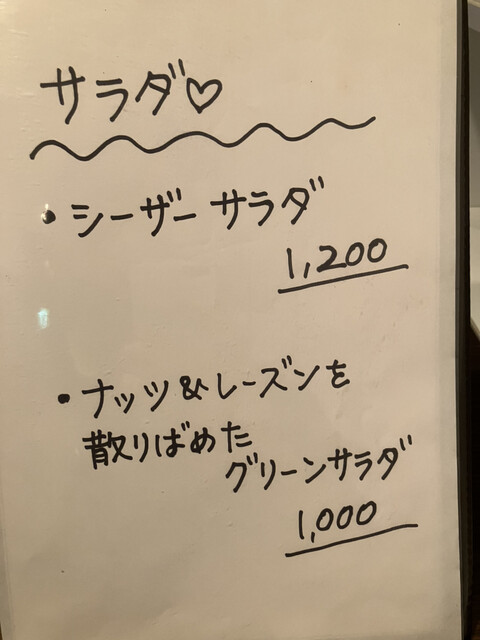 サラダ♡
・シーザーサラダ
1,200
・ナッツ&レーズンを
散りばめた
グリーンサラダ
1,000